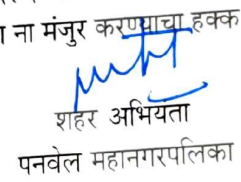 ना मंजुर करण्याचा हक्क
शहर अभियंता
पनवेल महानगरपलिका